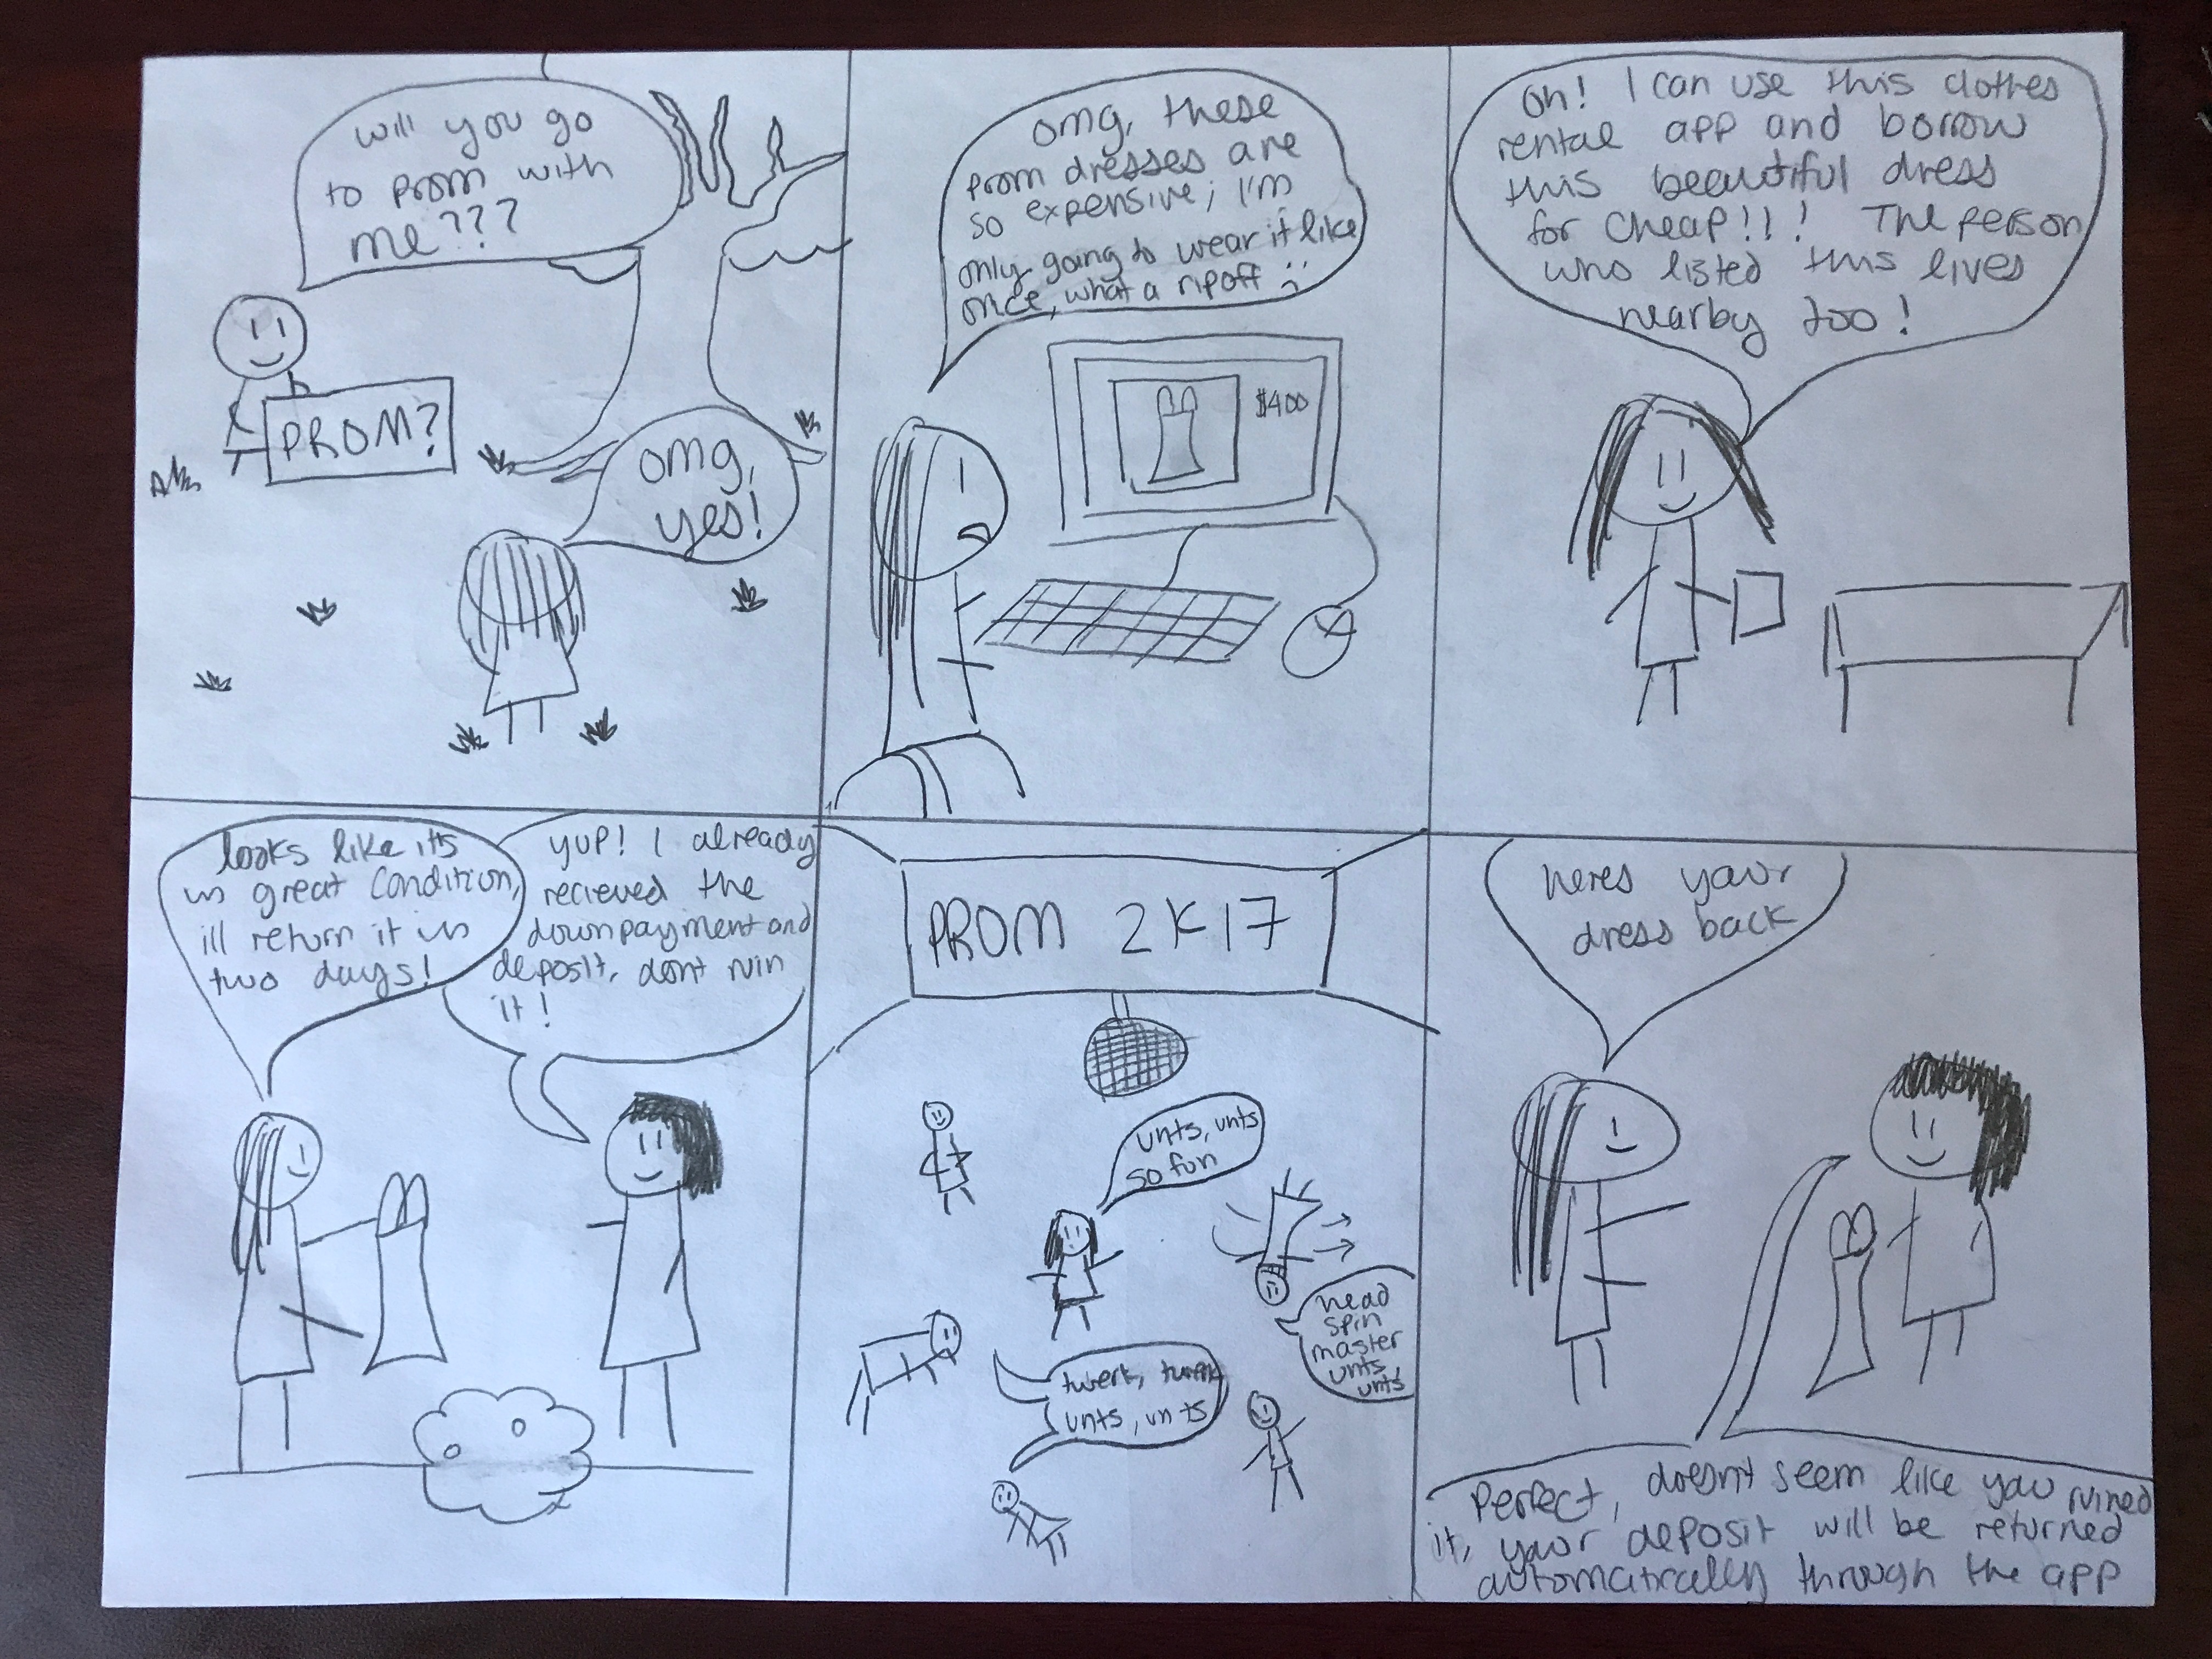 will you go
to prom with
me???
PROM?
omg,
yes!
omg, these
prom dresses are
so expensive; I'm
only going to wear it like
once, what a ripoff :(
$400
oh! I can use this clothes
rental app and borrow
this beautiful dress
for cheap!!! The person
who listed this lives
nearby too!
looks like its
in great condition,
ill return it in
two days!
yup! I already
recieved the
downpayment and
deposit, dont ruin
it!
PROM 2K17
unts, unts
so fun
head
spin
master
unts
unts
twerk, twerk
unts, unts
heres your
dress back
Perfect, doesnt seem like you ruined
it, your deposit will be returned
automatically through the app